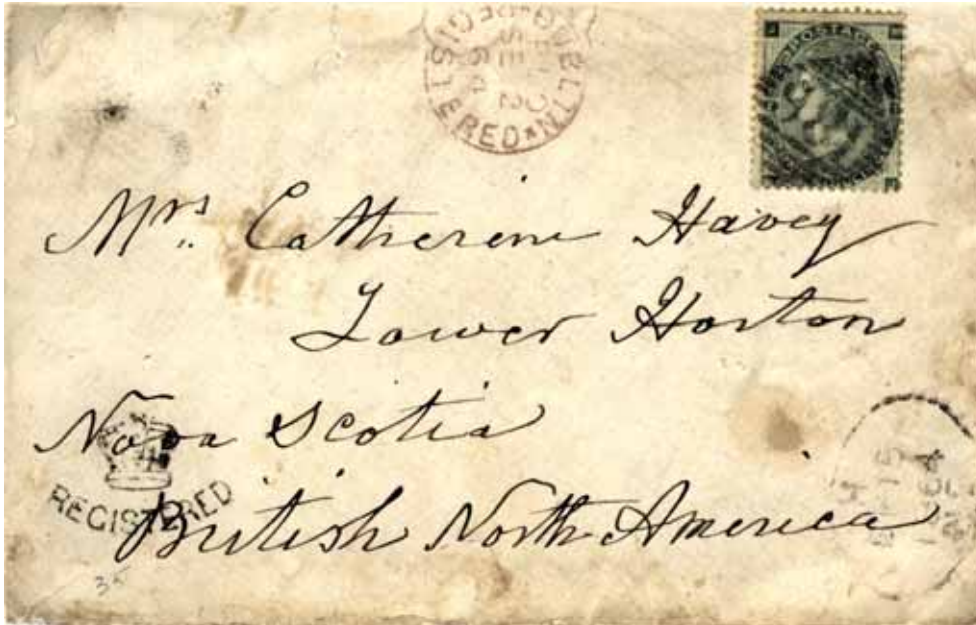 REGISTERED
SE
64
POSTAGE
Mrs. Catherine Havey
Lower Horton
Nova Scotia
REGISTERED
British North America
H
15
64